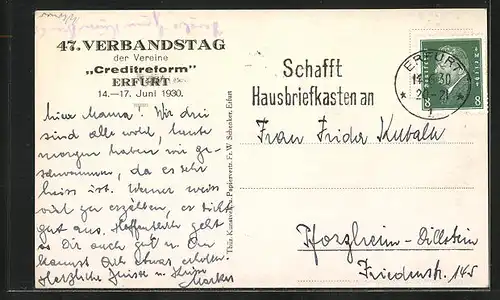 47. VERBANDSTAG
der Vereine
„Creditreform"
ERFURT
14.—17. Juni 1930.
Liebe Mama! Wir drei
sind alle wohl, heute
morgen haben wir ge-
schwommen, da es sehr
heiss ist. Werner weiss
viel zu erzählen, er sieht
gut aus. Hoffentlich geht
es Dir auch gut u. Du
kannst Dich etwas erholen.
Herzliche Grüsse u. Küsse
Thür. Kunstverlag u. Papiervertr. Fr. W. Schenker, Erfurt
Schafft
Hausbriefkasten an
ERFURT
30
20-21
8 8
Frau Frida Kubach
Pforzheim-Dillstein
Friedenstr. 145